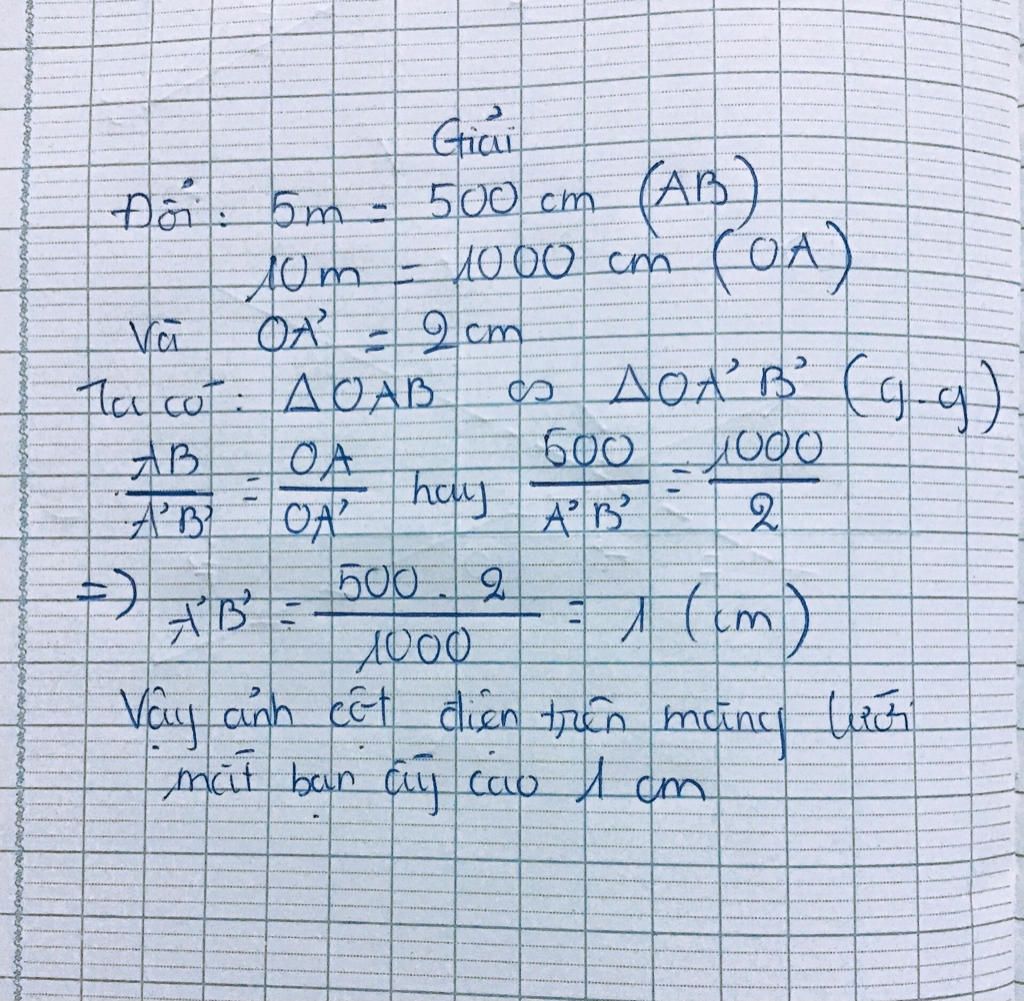 Giải
Đổi: 5m = 500 cm (AB)
10m = 1000 cm (OA)
Và OA' = 2cm
Ta có: ΔOAB ∽ ΔOA'B' (g-g)
AB/A'B' = OA/OA' hay 500/A'B' = 1000/2
=> A'B' = 500.2/1000 = 1 (cm)
Vậy ảnh cột điện trên màng lưới
mắt bạn ấy cao 1 cm